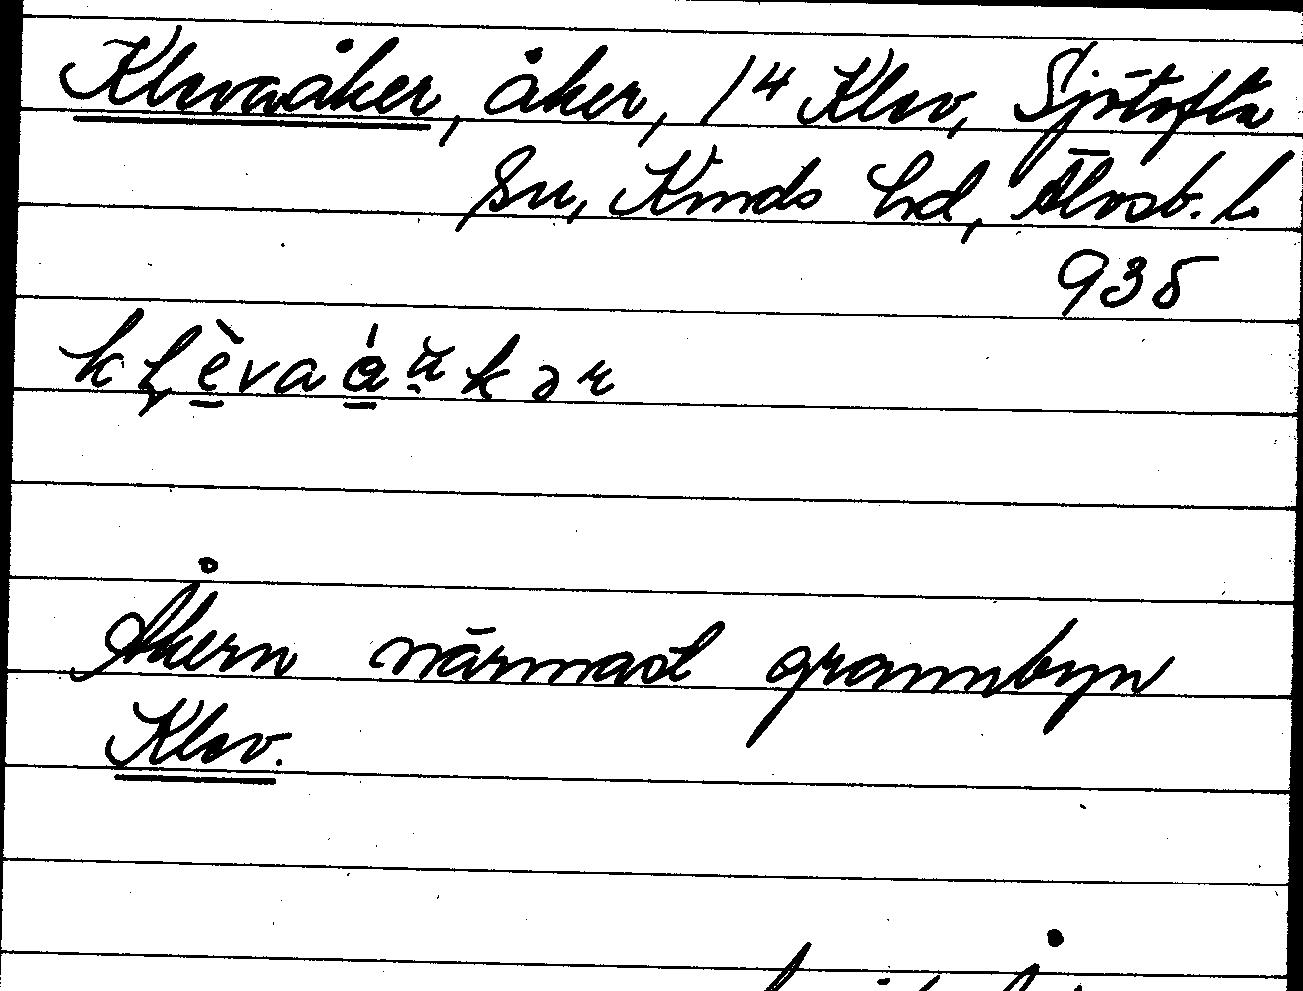 Klevaåker, åker, 1⁴ Klev, Sjötofta
sn, Kinds hd, Älvsb. l.
935
kḷèvaáu̯kər
Åkern närmast grannbyn
Klev.